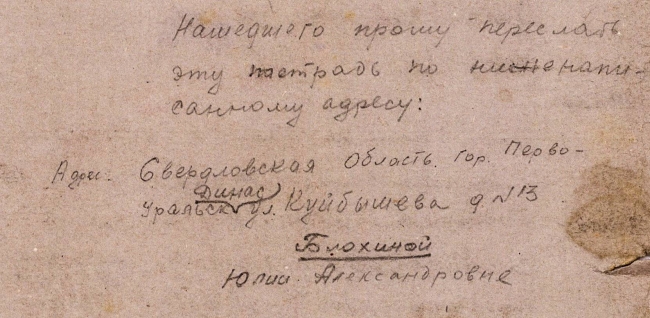 Нашедшего прошу переслать
эту тетрадь по нисненапи-
санному адресу:
Адрес. Свердловская Область. гор. Перво-
Динас
Уральск ул. Куйбышева д. №13
Блохиной
Юлии Александровне